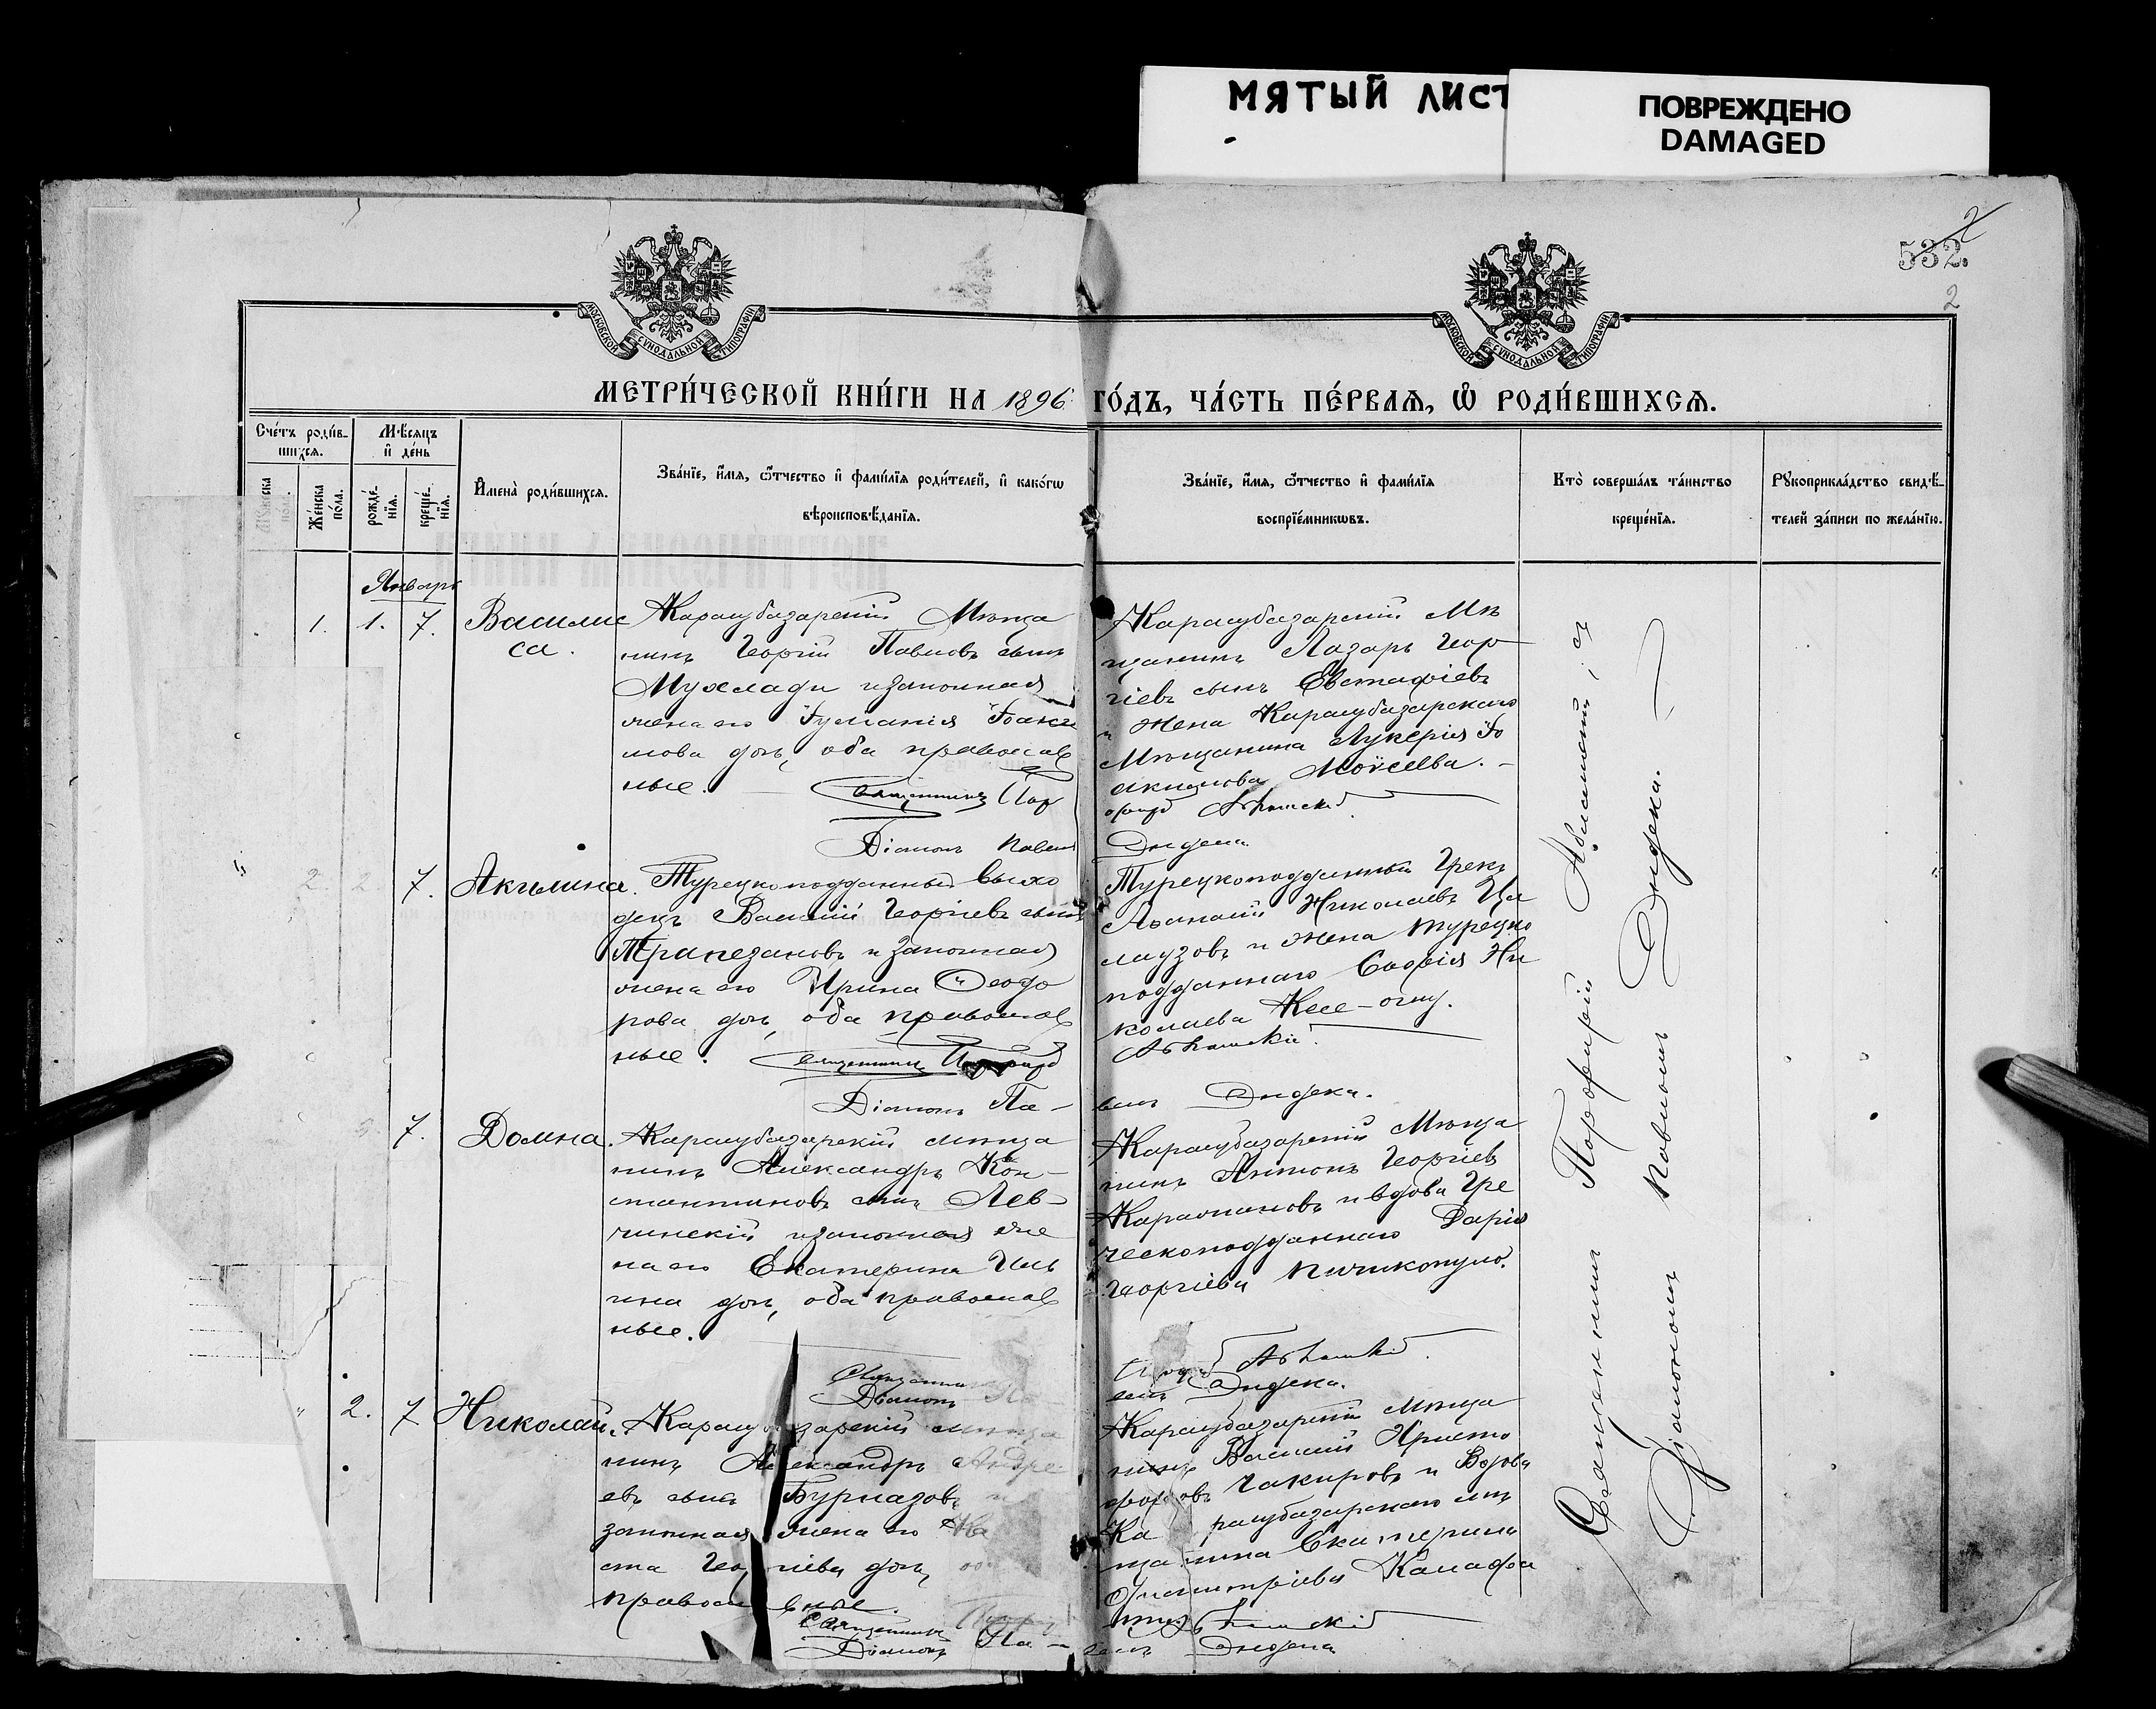 МЯТЫЙ ЛИСТ
ПОВРЕЖДЕНО
DAMAGED
2
532.
2
МОСКОВСКОЙ СѴНОДАЛЬНОЙ ТИПОГРАФІИ
МОСКОВСКОЙ СѴНОДАЛЬНОЙ ТИПОГРАФІИ
МЕТРИ́ЧЕСКОЙ КНИ́ГИ НА 1896 ГО́ДЪ, ЧА́СТЬ ПЕ́РВАЯ, Ѡ҆ РОДИ́ВШИХСЯ.
Сче́тъ роди́в-
шихся.
Мѣ́сяцъ
и҆ де́нь
Му́жеска
пола.
Же́нска
по́ла.
рожде́-
нїя.
креще́-
нїя.
И҆мена̀ роди́вшихся.
Зва́нїе, и҆́мя, ѻ҆́тчество и҆ фами́лїя роди́телей, и҆ како́гѡ
вѣроисповѣ́данїя.
Зва́нїе, и҆́мя, ѻ҆́тчество и҆ фами́лїя
воспрїе́мникѡвъ.
Кто̀ соверша́лъ та́инство
креще́нїя.
Рꙋкоприкла́дство свидѣ́-
телей за́писи по жела́нїю.
Январь
1. 1. 7. Василис
са.
Карасубазарскій Мѣща
нинъ Георгій Павловъ сынъ
Мухлади и законная
жена его Іуліанія Іоаки
мова дочь, оба православ
ные. Священникъ Пор
Діаконъ Павелъ
Карасубазарскій Мѣ
щанинъ Лазарь Геор
гіевъ сынъ Евстафіевъ
и жена Карасубазарскаго
Мѣщанина Лукерія Іо
акимова Моисеева. -
Дндека
2. 2. 7. Акилина.
Турецкоподданный выхо
децъ Василій Георгіевъ сынъ
Трапезановъ и законная
жена его Ирина Ѳеодо
рова дочь, оба православ
ные. Священникъ
Діаконъ Па-
Турецкоподданный Грекъ
Аѳанасій Николаевъ
и жена турецко
подданнаго Софія Ни
колаева Кесе-оглу.
велъ Дндека.
3. 7. Домна.
Карасубазарскій мѣща
нинъ Александръ Кон-
стантиновъ сынъ Лев-
чинскій и законная же
на его Екатерина Иль
ина дочь, оба православ
ные.
Священникъ
Діаконъ Па
Карасубазарскій Мѣща
нинъ Антонъ Георгіевъ
Караманиовъ и вдова Гре
ческоподданнаго Дарія
Георгіева Пичикопуло.
велъ Дндека.
2. 7. Николай.
Карасубазарскій мѣща
нинъ Александръ Андре
евъ сынъ Бурназовъ и
законная жена его
Георгіева дочь, оба
православные.
Священникъ
Діаконъ Па-
Карасубазарскій Мѣща
нинъ Василій Христо
форовъ Чакировъ и Вдова
Карасубазарскаго мѣ
щанина Екатерина
Димитріева
велъ Дндека
Священникъ Порфирій
Діакономъ Павломъ Дндека.